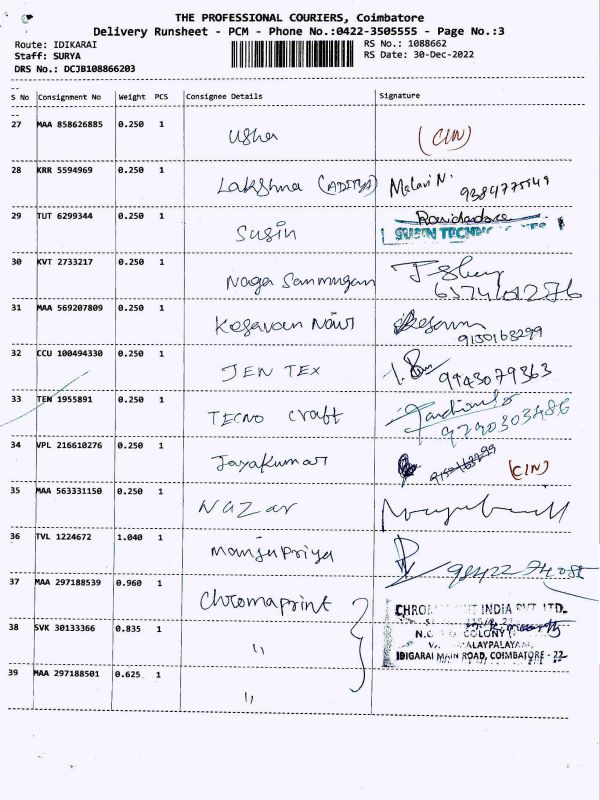 THE PROFESSIONAL COURIERS, Coimbatore
Delivery Runsheet - PCM - Phone No.:0422-3505555 - Page No.:3
Route: IDIKARAI
Staff: SURYA
DRS No.: DCJB108866203
RS No.: 1088662
RS Date: 30-Dec-2022
S No Consignment No Weight PCS Consignee Details Signature
27 MAA 858626885 0.250 1 Usha (CIN)
28 KRR 5594969 0.250 1 Lakshma (ADITYA) Malavi N.
29 TUT 6299344 0.250 1 Susin
SUSIN
30 KVT 2733217 0.250 1 Naga Sanmugan
31 MAA 569207809 0.250 1 Kesavan Nair
9150163299
32 CCU 100494330 0.250 1 JEN TEX 9943079363
33 TEN 1955891 0.250 1 TECNO craft
9790303486
34 VPL 216610276 0.250 1 Jayakumar (CIN)
35 MAA 563331150 0.250 1 Nazar
36 TVL 1224672 1.040 1 Manju Priya
37 MAA 297188539 0.960 1 Chromaprint
INDIA PVT. LTD.
38 SVK 30133366 0.835 1 "
COLONY
IDIGARAI MAIN ROAD, COIMBATORE - 22
39 MAA 297188501 0.625 1 "